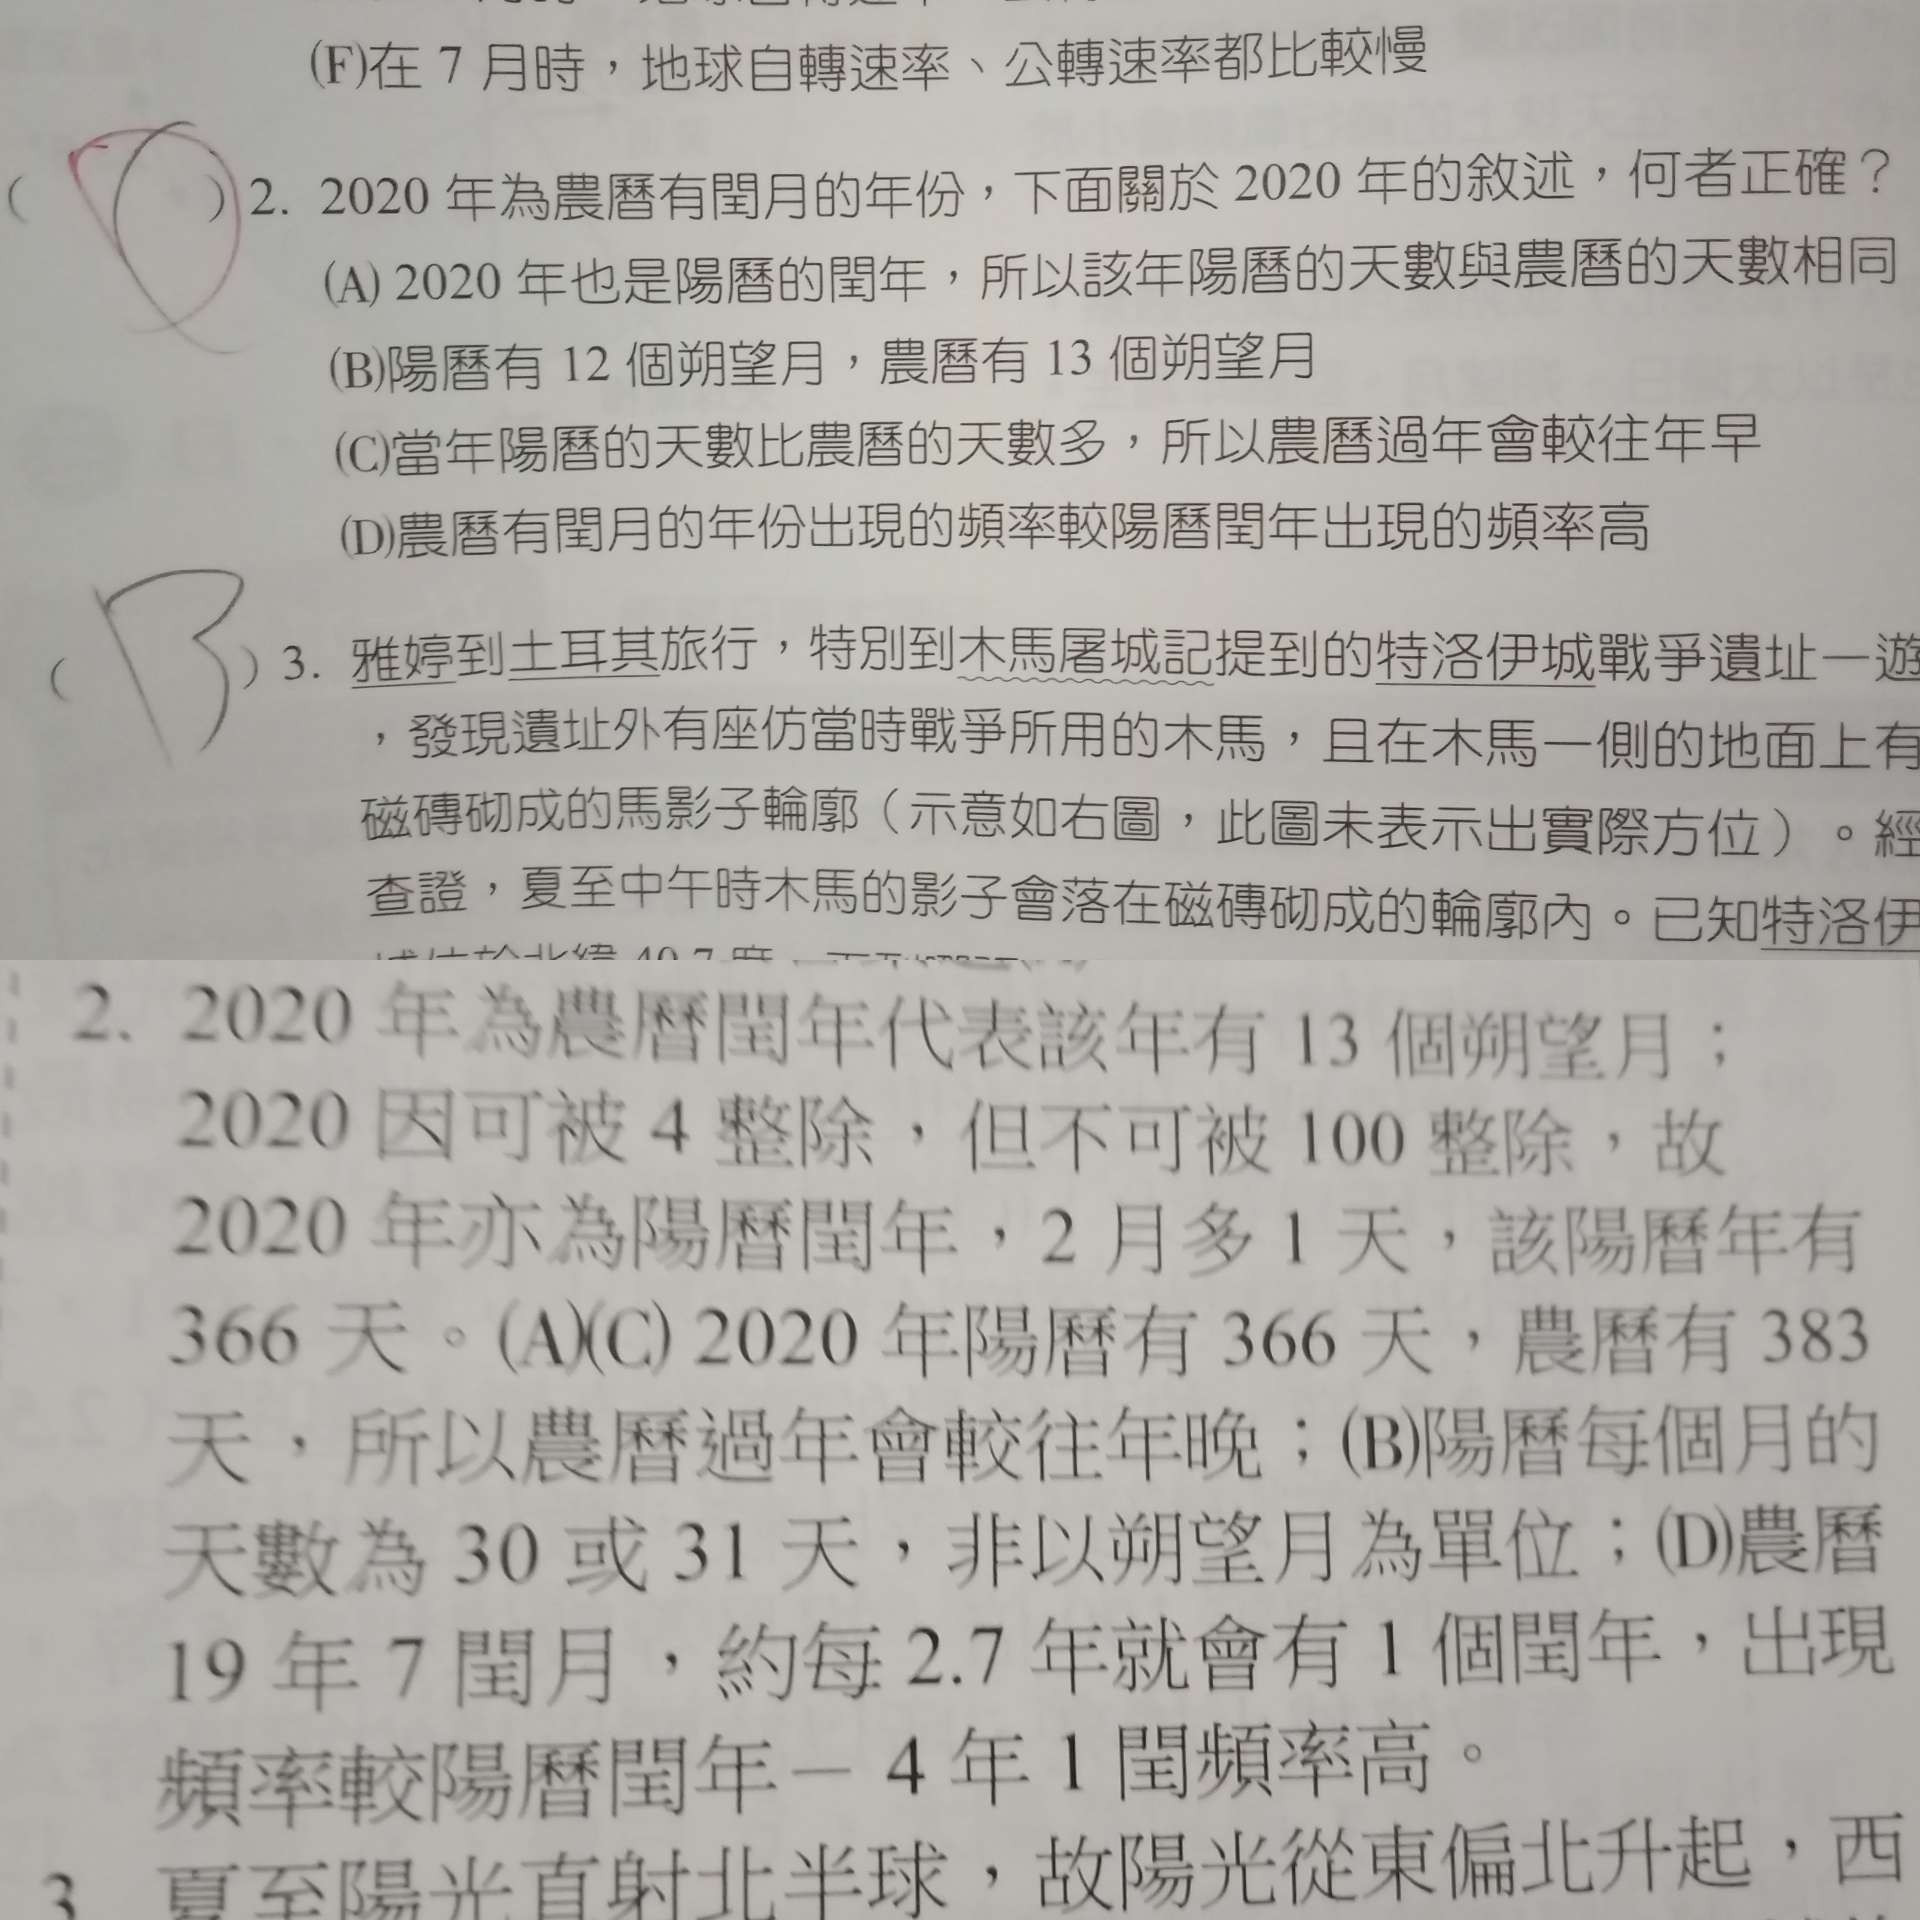 (F)在 7 月時，地球自轉速率、公轉速率都比較慢
( D )2. 2020 年為農曆有閏月的年份，下面關於 2020 年的敘述，何者正確？
(A) 2020 年也是陽曆的閏年，所以該年陽曆的天數與農曆的天數相同
(B)陽曆有 12 個朔望月，農曆有 13 個朔望月
(C)當年陽曆的天數比農曆的天數多，所以農曆過年會較往年早
(D)農曆有閏月的年份出現的頻率較陽曆閏年出現的頻率高
( B )3. 雅婷到土耳其旅行，特別到木馬屠城記提到的特洛伊城戰爭遺址一遊
，發現遺址外有座仿當時戰爭所用的木馬，且在木馬一側的地面上有
磁磚砌成的馬影子輪廓（示意如右圖，此圖未表示出實際方位）。經
查證，夏至中午時木馬的影子會落在磁磚砌成的輪廓內。已知特洛伊
2. 2020 年為農曆閏年代表該年有 13 個朔望月；
2020 因可被 4 整除，但不可被 100 整除，故
2020 年亦為陽曆閏年，2 月多 1 天，該陽曆年有
366 天。(A)(C) 2020 年陽曆有 366 天，農曆有 383
天，所以農曆過年會較往年晚；(B)陽曆每個月的
天數為 30 或 31 天，非以朔望月為單位；(D)農曆
19 年 7 閏月，約每 2.7 年就會有 1 個閏年，出現
頻率較陽曆閏年－ 4 年 1 閏頻率高。
3 夏至陽光直射北半球，故陽光從東偏北升起，西